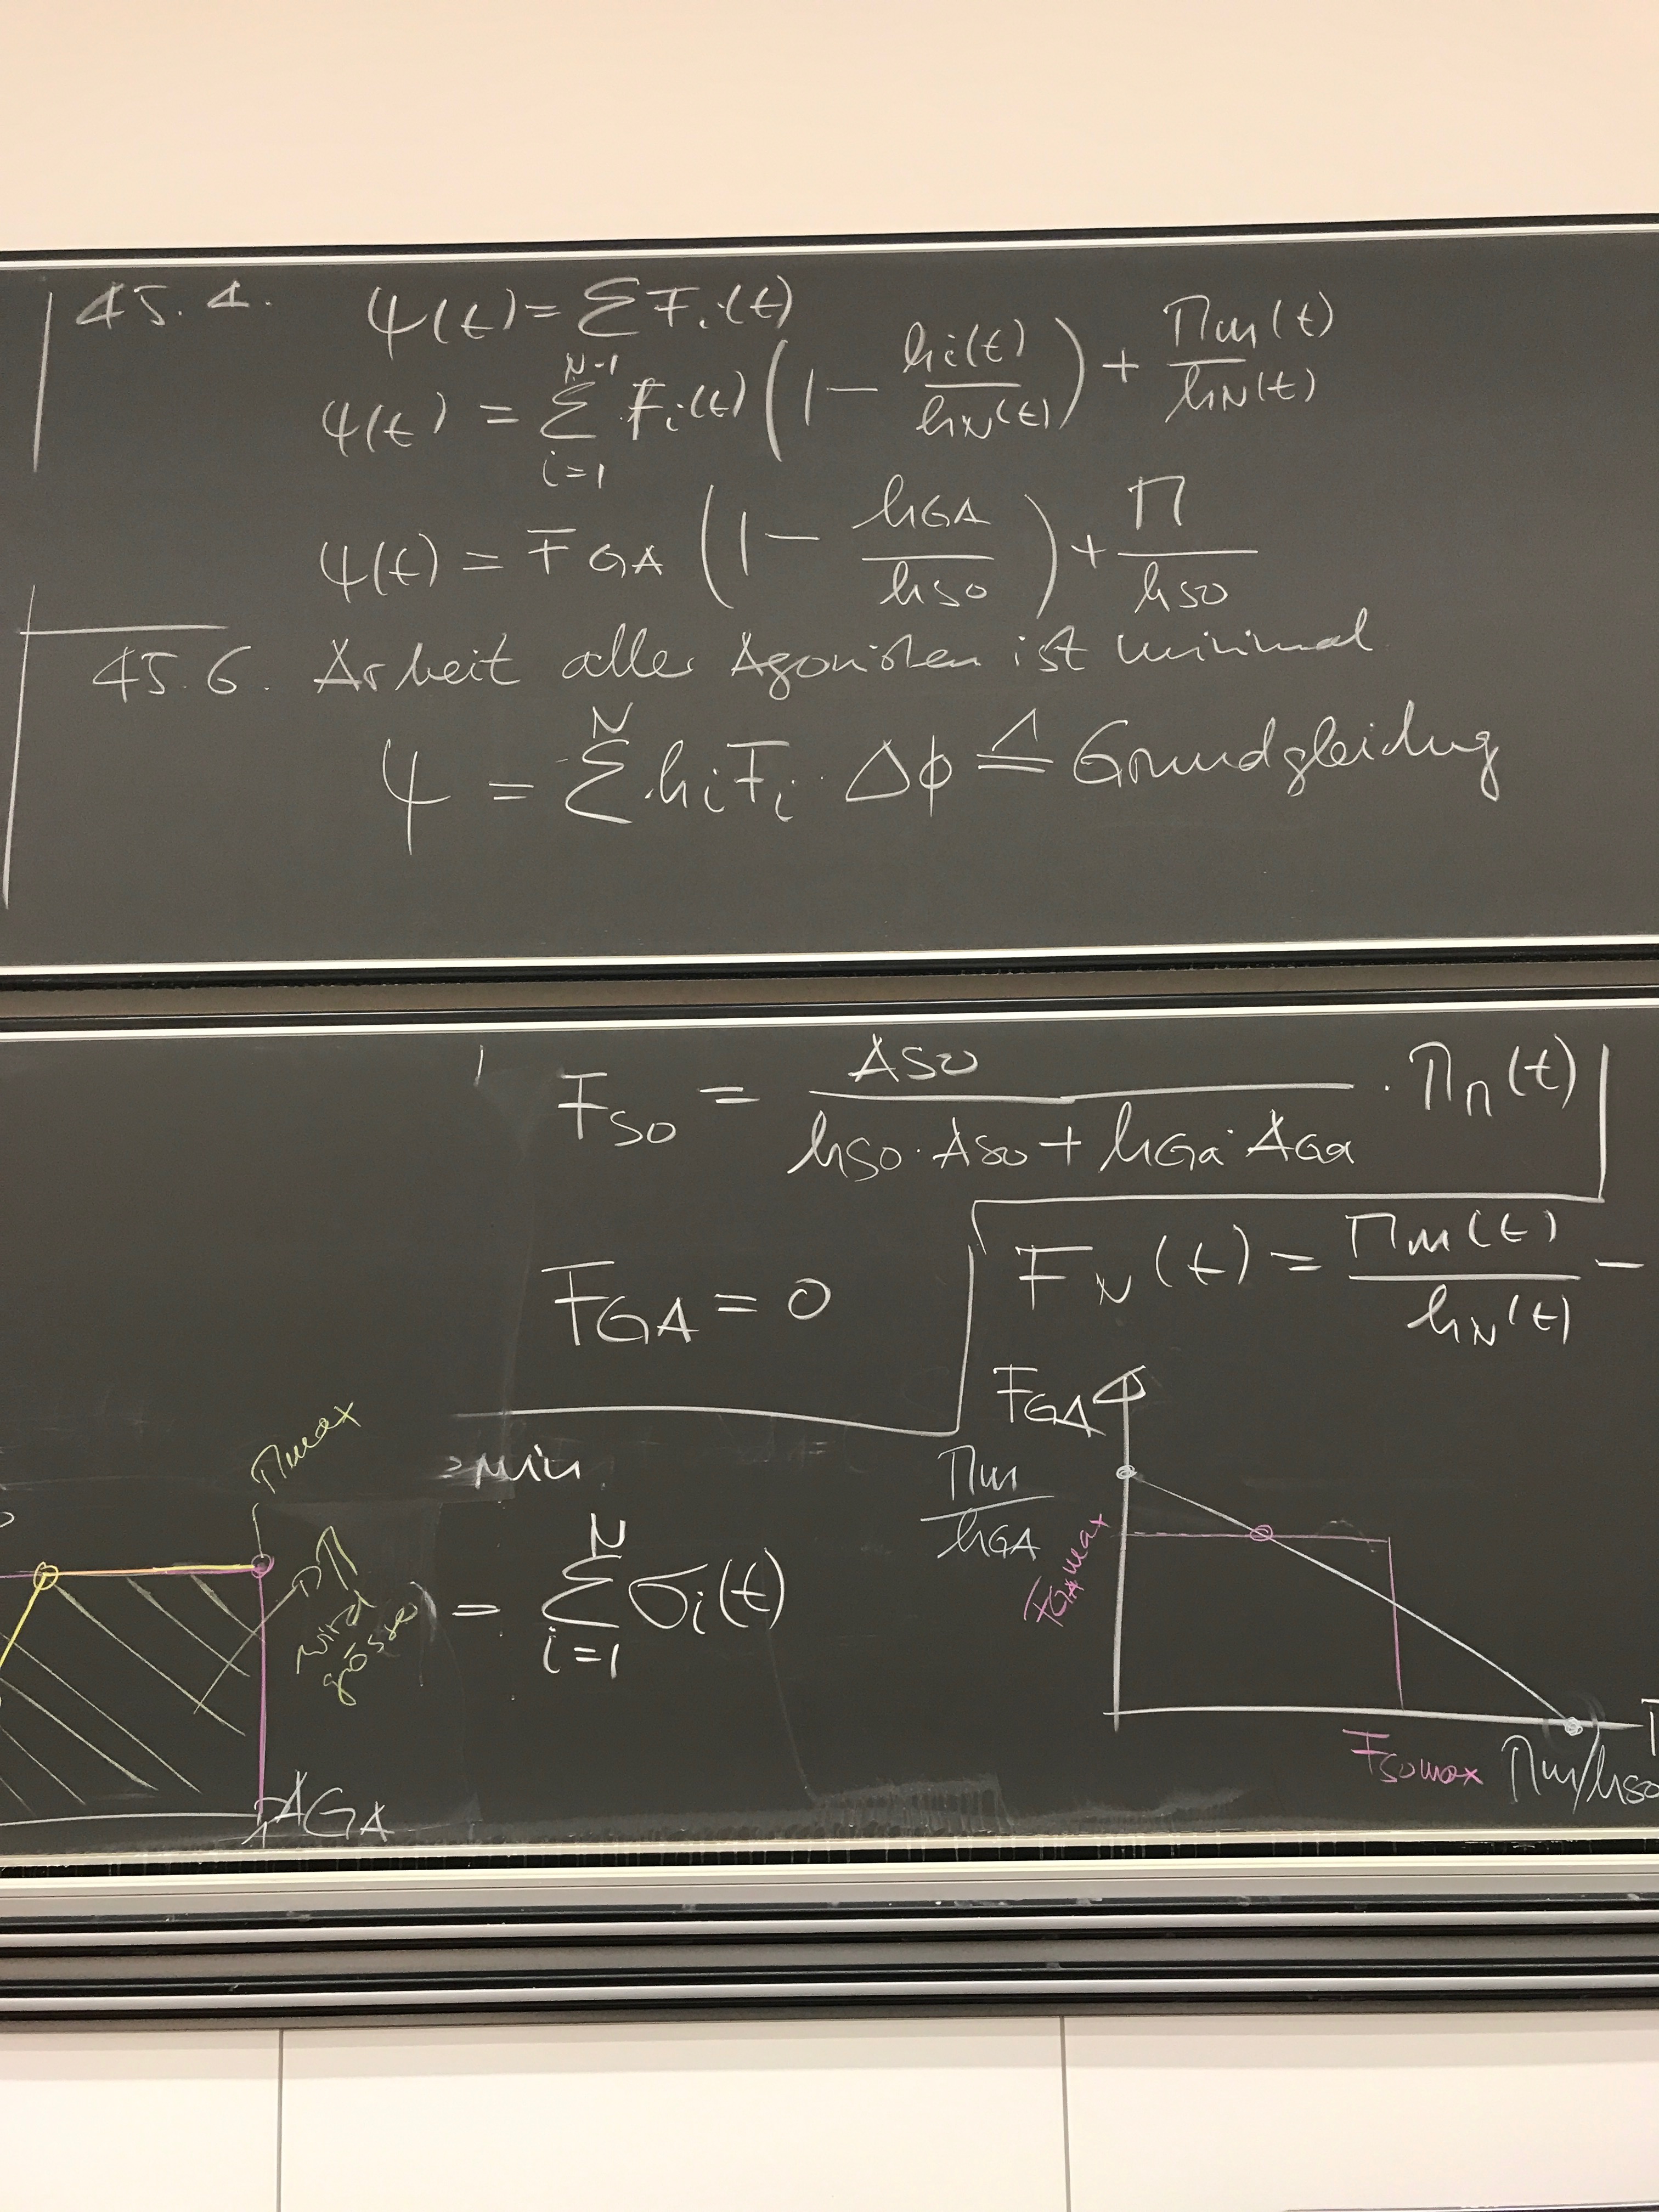 45.4. ψ(t) = Σ Fi(t)
ψ(t) = Σ_{i=1}^{N-1} Fi(t) (1 − hi(t)/hN(t)) + ΠM(t)/hN(t)
ψ(t) = FGA (1 − hGA/hSO) + Π/hSO
45.6. Arbeit aller Agonisten ist minimal
ψ = Σ^N hi Fi · Δϕ ≙ Grundgleichug
FSO = ASO/(hSO · ASO + hGa · AGa) · Πn(t)
FGA = 0
FN(t) = ΠM(t)/hN(t) −
Πmax
=min
wird
grösse
) = Σ_{i=1}^{N} σi(t)
AGA
FGA
ΠM/hGA
FGAmax
FSOmax
ΠM/hSO